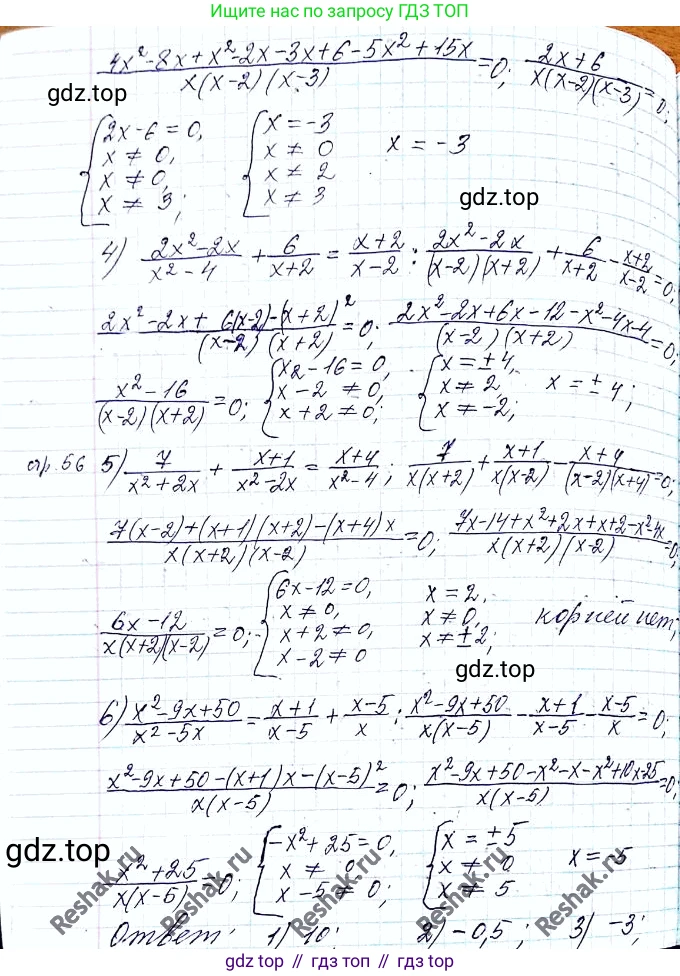 Ищите нас по поиску ГДЗ ТОП
(4x²-8x+x²-2x-3x+6-5x²+15x)/(x(x-2)(x-3))=0; (2x+6)/(x(x-2)(x-3))=0;
gdz.top
{2x-6=0, {x=-3
x≠0, x≠0 x=-3
x≠0, x≠2
x≠3; x≠3
gdz.top
4) (2x²-2x)/(x²-4) + 6/(x+2) = (x+2)/(x-2); (2x²-2x)/((x-2)(x+2)) + 6/(x+2) - (x+2)/(x-2)=0;
(2x²-2x+6(x-2)-(x+2)²)/((x-2)(x+2))=0; (2x²-2x+6x-12-x²-4x-4)/((x-2)(x+2))=0;
(x²-16)/((x-2)(x+2))=0; {x2-16=0, {x=±4,
x-2≠0, x≠2, x=±4;
x+2≠0; x≠-2;
gdz.top
стр.56 5) 7/(x²+2x) + (x+1)/(x²-2x) = (x+4)/(x²-4); 7/(x(x+2)) + (x+1)/(x(x-2)) - (x+4)/((x-2)(x+4))=0;
(7(x-2)+(x+1)(x+2)-(x+4)x)/(x(x+2)(x-2))=0; (7x-14+x²+2x+x+2-x²-4x)/(x(x+2)(x-2))=0;
(6x-12)/(x(x+2)(x-2))=0; {6x-12=0, x=2,
x≠0, x≠0, корней нет;
x+2≠0, x≠±2;
x-2≠0
gdz.top
6) (x²-9x+50)/(x²-5x) = (x+1)/(x-5) + (x-5)/x; (x²-9x+50)/(x(x-5)) - (x+1)/(x-5) - (x-5)/x=0;
(x²-9x+50-(x+1)x-(x-5)²)/(x(x-5))=0; (x²-9x+50-x²-x-x²+10x-25)/(x(x-5))=0;
gdz.top
(-x²+25)/(x(x-5))=0; {-x²+25=0, {x=±5
x≠0 x≠0 x=-5
x-5≠0; x≠5
Reshak.ru
Reshak.ru
Reshak.ru
Reshak.ru
Ответ: 1) 10; 2) -0,5; 3) -3;
gdz.top // гдз.топ // гдз топ